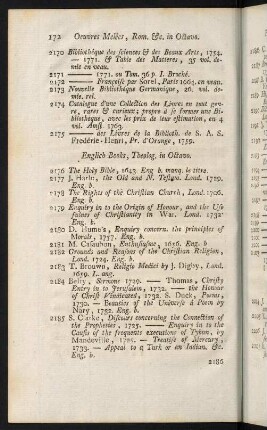 172 Oeuvres Melées, Rom. &c. in Octavo.
2170 Bibliothéque des sciences & des Beaux Arts, 1754.
— 1771. & Table des Matieres, 35 vol. de-
mie en veau.
2171 —— —— 1771. ou Tom. 36 p. I.
2172 —— Françoise par Sorel, Paris 1664. en veau.
2173 Nouvelle Bibliothéque Germanique, 26. vol. de-
mie. rel.
2174 Catalogue d'une Collection des Livres en tout gen-
re, rares & curieux; propre à se former une Bi-
bliotheque, avec les prix de leur estimation, en 4
vol. Amst. 1763.
2175 —— des Livres de la Biblioth. de S. A. S.
Frederic-Henri, Pr. d'Orange, 1759.
English Books, Theolog. in Octavo.
2176 The Holy Bible, 1643. Eng. b. manq. le titre.
2177 the Old and N. Testam. Lond. 1729.
Eng. b.
2178 The Rights of the Christian Church, Lond. 1706.
Eng. b.
2179 Enquiry in to the Origin of Honour, and the Use
fulnes of Christianity in War. Lond. 1732.
Eng. b.
2180 D. Hume's, Enquiry concern. the principles of
Morals, 1757. Eng. b.
2181 M. Casaubon, Enthusiasme, 1656. Eng. b
2182 Grounds and Reasons of the Christian Religion,
Lond. 1724. Eng. b.
2183 T. Brouwn, Religio Medici by J. Digby, Lond.
1659. L. ang.
2184 Betty, Sermons 1729. — Thomas, Christs
Entry in to Jerusalem, 1732. — the Honour
of Christ Vindicated, 1732. S. Duck, Poems,
1730. — Beauties of the Universe a Poem by
Nary, 1732. Eng. b.
2185 S. Clarke, Discours concerning the Connection of
the Prophecies, 1725. —— Enquiry in to the
Causes of the frequent executions at Tyburn, by
Mandeville, 1725. — Treatise of Mercury,
1733. — Appeal to a Turk or an Indian. &c.
Eng. b.
2186